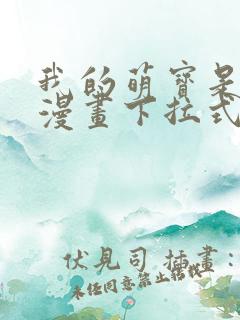 我的萌寶是
漫畫下拉式
伏見司 插畫：
未任同意禁止轉載